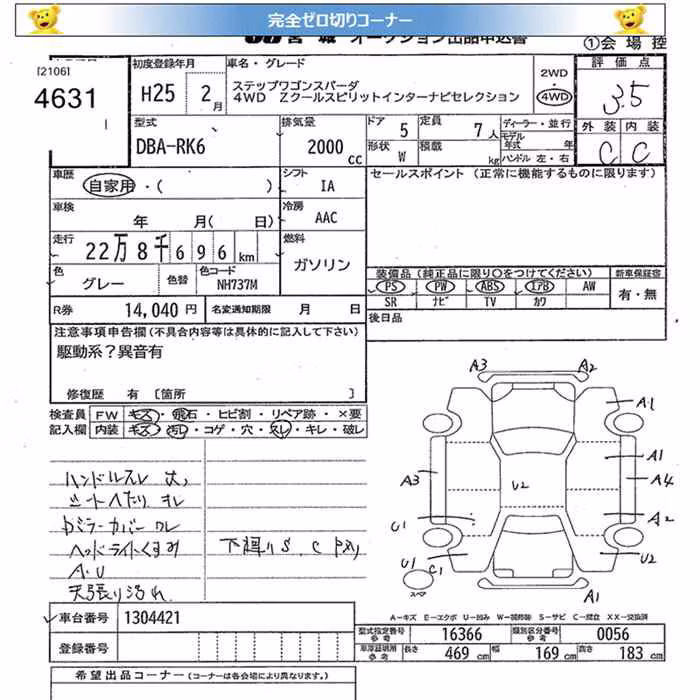 完全ゼロ切りコーナー
宮城 オークション出品申込書
①会場控
[2106]
4631
初度登録年月
H25 2月
車名・グレード
ステップワゴンスパーダ
4WD Zクールスピリットインターナビセレクション
2WD
4WD
評価点
3.5
外装 内装
C C
型式
DBA-RK6
排気量
2000 cc
ドア 5
定員 7人
形状 W
積載 kg
ディーラー・並行
モデル年式 年
ハンドル 左・右
車歴
自家用・( )
シフト IA
車検
年 月( 日)
冷房 AAC
走行
22万8千696km
燃料
ガソリン
色
グレー
色替
色コード
NH737M
R券 14,040円
名変通知期限 月 日
セールスポイント(正常に機能するものに限ります)
装備品(純正品に限り〇をつけてください)
新車保証書
PS PW ABS エアB AW
SR ナビ TV カワ
有・無
後日品
注意事項申告欄(不具合内容等は具体的に記入して下さい)
駆動系?異音有
修復歴 有 [箇所 ]
検査員 FW キズ・飛石・ヒビ割・リペア跡・×要
記入欄 内装 キズ・汚れ・コゲ・穴・スレ・キレ・破レ
ハンドルスレ 大
シートヘタリ スレ
ヘッドライトくすみ
A・U
天張り汚れ
下廻りS、C
A3 A2
A1
A1
A3 U2 A4
U1 A2
U1 C1 U2
スペア
A1
A-キズ E-エクボ U-凹み W-補修跡 S-サビ C-腐食 XX-交換済
車台番号 1304421
登録番号
型式指定番号 参考 16366
類別区分番号 参考 0056
車庫証明用 参考 長さ 469cm 幅 169cm 高さ 183cm
希望出品コーナー(コーナーは各会場により異なります。)